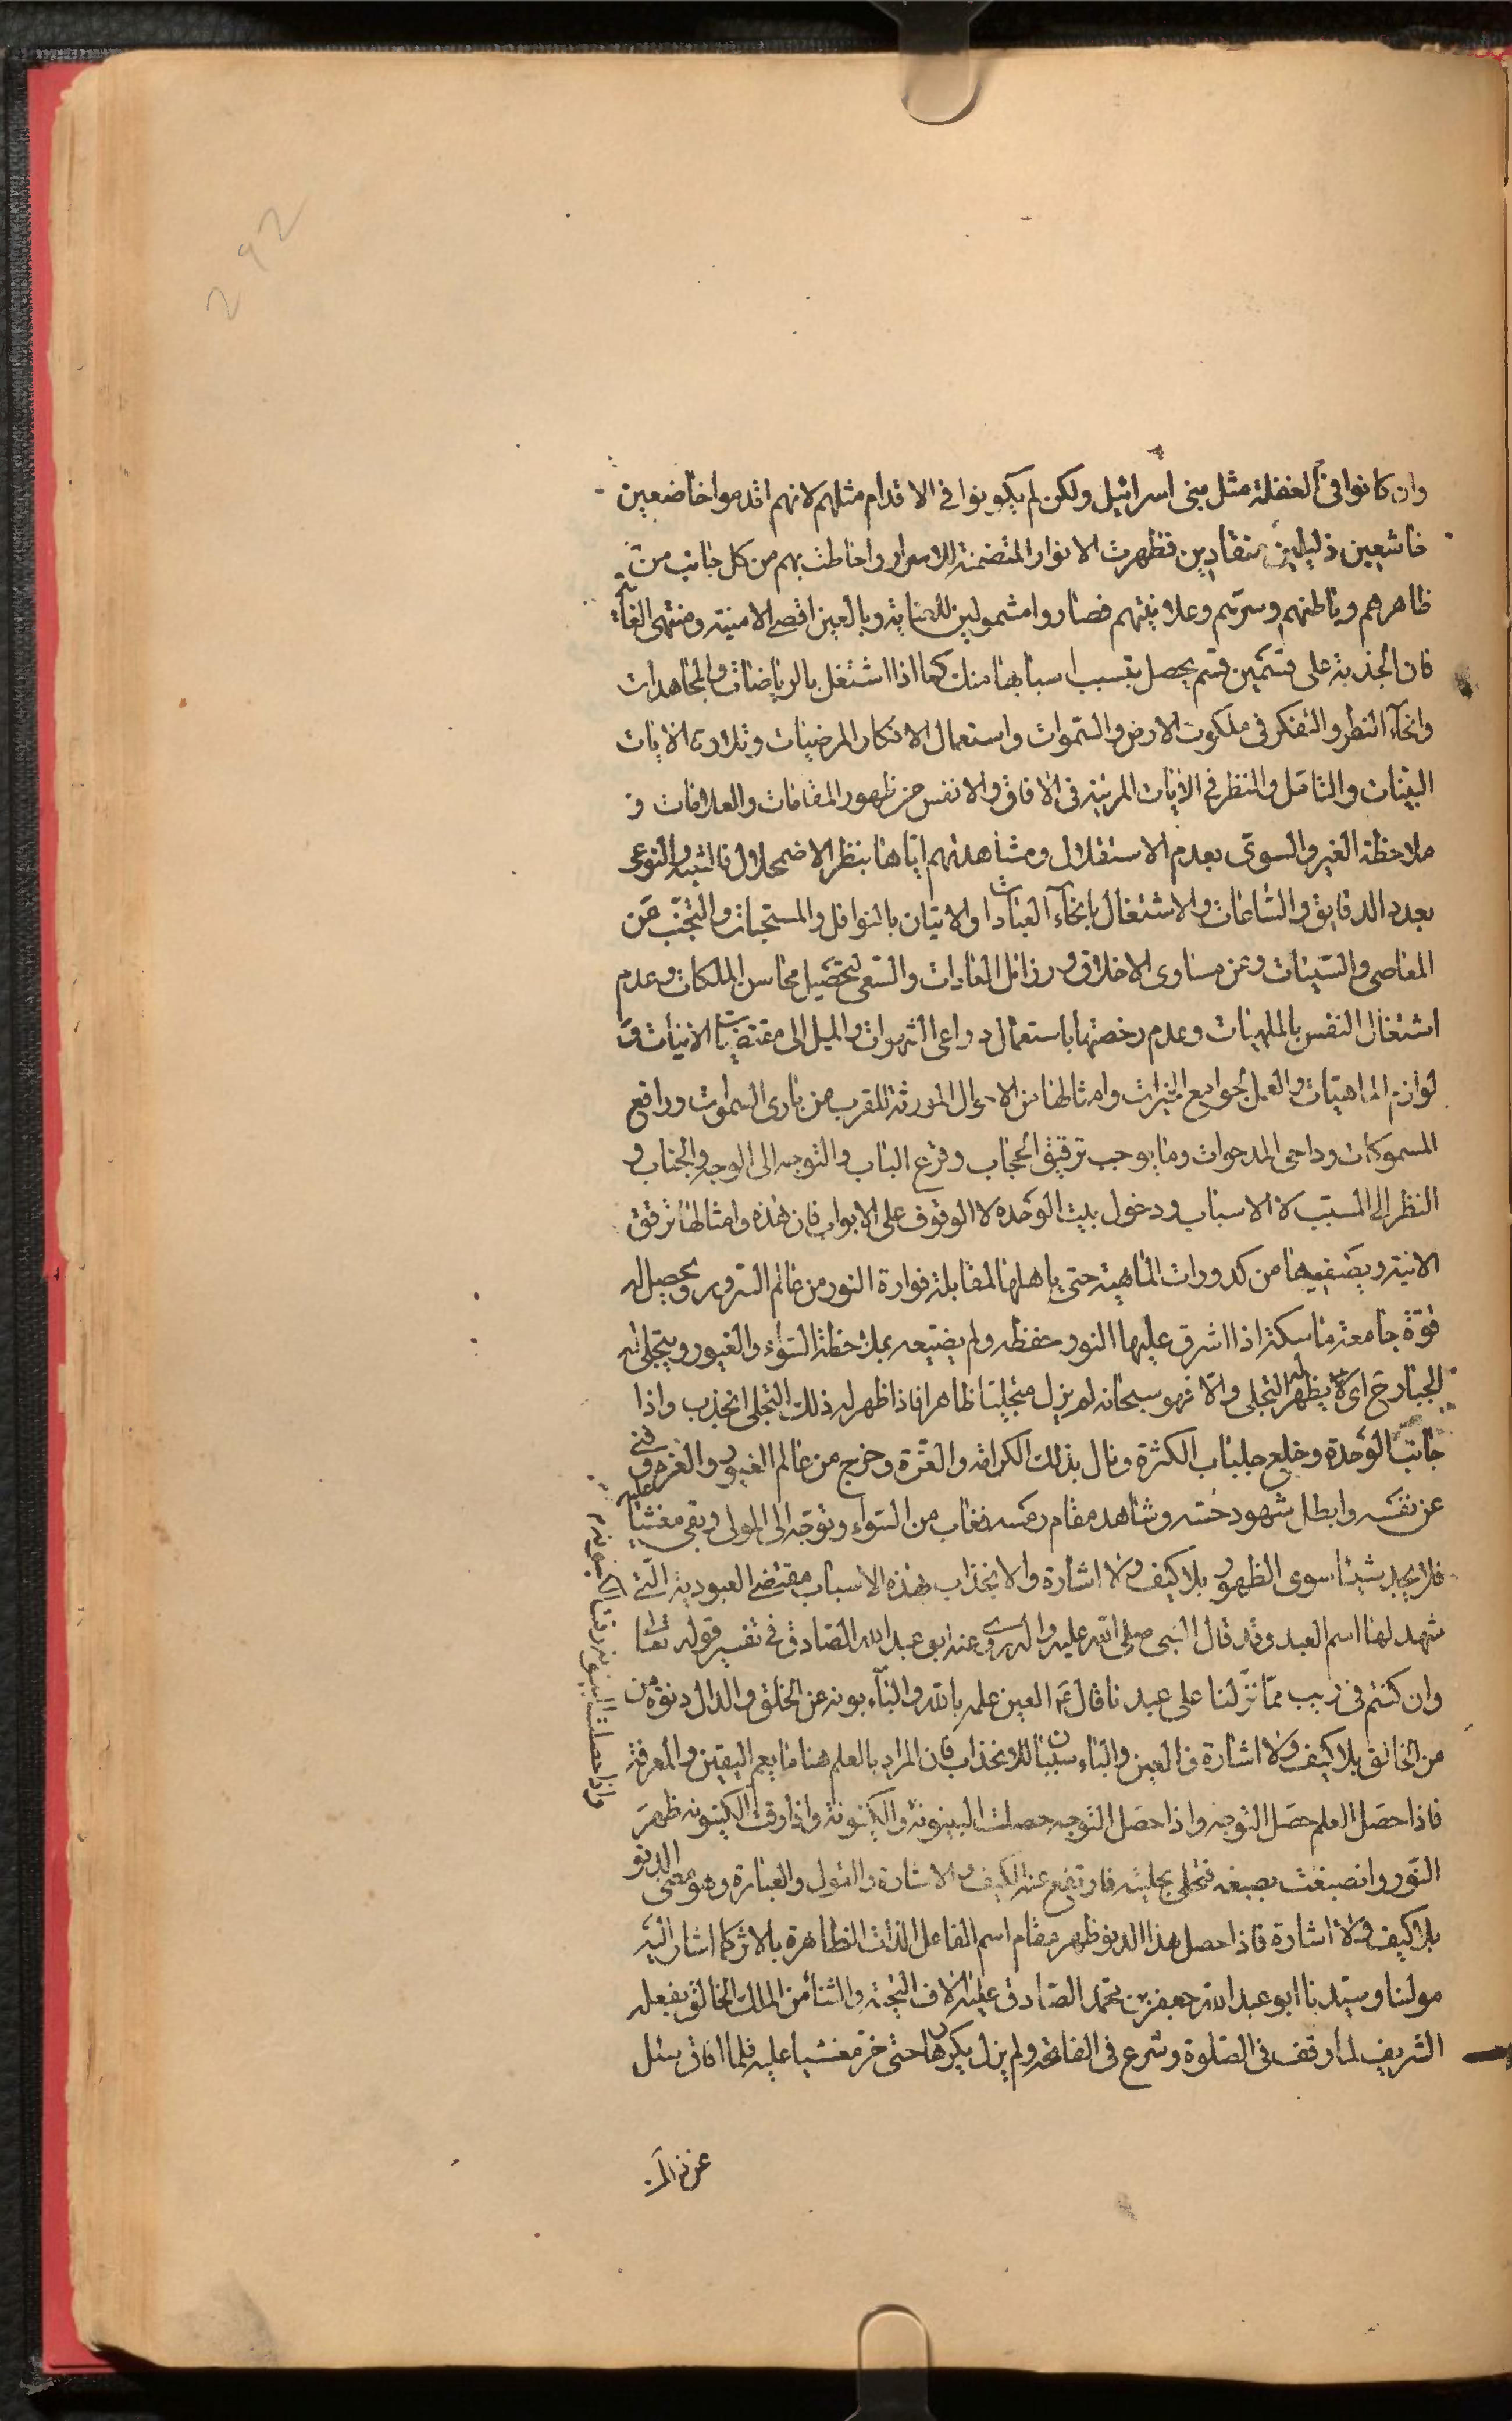 292
وان كانوا فى الغفلة مثل بنى اسرائيل ولكن لم يكونوا فى الاقدام مثلهم لانهم اقدموا خاضعين
خاشعين ذليلين منقادين فظهرت الانوار المتضمنة للاسرار واحاطت بهم من كل جانب من
ظاهرهم وباطنهم وسرّهم وعلانيتهم فصاروا مشمولين للعناية وبالغين اقصى الامنية ومنتهى الغاية
فان الجذبة على قسمين قسم يحصل بتسبب اسبابها منك كما اذا اشتغل بالرياضات والمجاهدات
وانحآء النظر والتفكر فى ملكوت الارض والسّموات واستعمال الاذكار المرضيات وتلاوة الايات
البيّنات والتامّل والنظر فى الايات المرئية فى الافاق والانفس من ظهور المقامات والعلامات و
ملاحظة الغير والسوى بعدم الاستقلال ومشاهدتهم ايّاها بنظر الاضمحلال
بعدد الدقايق والساعات والاشتغال بانحآء العبادات والاتيان بالنوافل والمستحبات والتجنّب عن
المعاصى والسّيئات وعن مساوى الاخلاق ورزائل العادات والسّعى لتحصيل محاسن الملكات وعدم
اشتغال النفس بالملهيات وعدم رخصتها باستعمال دواعى الشهوات والميل الى مقتضيات الانيات و
لوازم الماهيّات والعمل بجوامع الخيرات وامثالها من الاحوال المورثة للقرب من بارى السموات ورافع
المسموكات وداحى المدحوات وما يوجب ترقيق الحجاب وقرع الباب والتوجه الى الوجه والجناب و
النظر الى المسبّب لا الاسباب ودخول بيت الوحدة لا الوقوف على الابواب فان هذه وامثالها ترقق
الانية ويصفيها من كدورات الماهية حتى ياهلها لمقابلة فوارة النور من عالم السرور ويحصل له
قوّة جامعة ماسكة اذا اشرق عليها النور حفظه ولم يضيّعه بملاحظة السّوٰء والغيور ويتجلى له
الجبار ح اى يظهر له التجلى والا فهو سبحانه لم يزل متجليّا ظاهرا فاذا ظهر له ذلك التجلى انجذب واذا
جانب الوحدة وخلع جلباب الكثرة ونال بذلك الكرامة والعزّة وخرج من عالم الغيور والغرور وفنى
عن نفسه وابطل شهود حسّه وشاهد مقام رمسه فغاب من السّواء وتوجّه الى المولى وبقى مغشيا عليه
فلا يجد شيئا سوى الظهور بلا كيف ولا اشارة والانجذاب بهذه الاسباب مقتضى العبودية الّتى
شهد لها اسم العبد وقد قال النبى صلى الله عليه واله روى عنه ابو عبد الله الصّادق فى تفسير قوله تعا
وان كنتم فى ريب ممّا نزّلنا على عبدنا قال ع العين علمه بالله والبآء بونه عن الخلق والدال دنوّه من
من الخالق بلا كيف ولا اشارة فالعين والباء سببان للانجذاب فان المراد بالعلم هنا ما يعم اليقين والمعرفة
فاذا حصل العلم حصل التوجّه واذا حصل التوجه حصلت البينونة والكينونة واذا رقت الكينونة ظهر
النّور وانصبغت بصبغه فتحلى بحليته فارتفع عنه الكيف والاشارة والقول والعبارة وهو معنى الدنو
بلا كيف ولا اشارة فاذا حصل هذا الدنو ظهر مقام اسم الفاعل الذات الظاهرة بالاثر كما اشار اليه
مولنا وسيّدنا ابو عبد الله جعفر بن محمد الصّادق عليه الاف التحيّة والثنآء من الملك الخالق بفعله
الشريف لما وقف فى الصّلوة وشرع فى الفاتحة ولم يزل يكررها حتى خرّ مغشيا عليه فلما افاق سئل
واذا حصلت البينونة رقت الكينونة